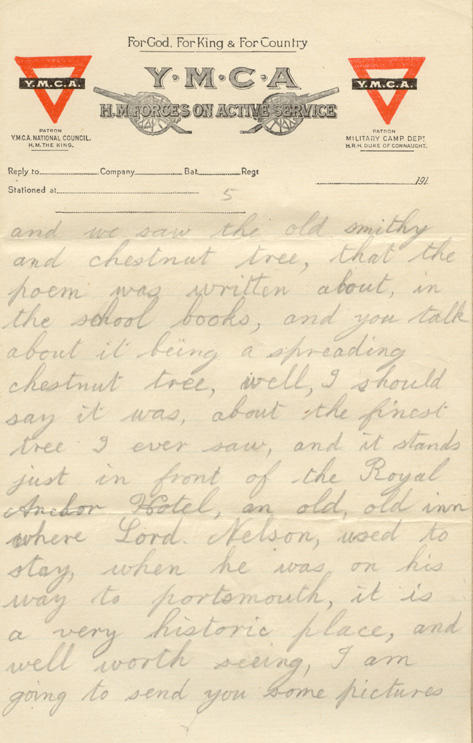 For God, For King & For Country
Y·M·C·A
H.M. FORCES ON ACTIVE SERVICE
Y.M.C.A.
PATRON
Y.M.C.A. NATIONAL COUNCIL.
H.M. THE KING.
Y.M.C.A.
PATRON
MILITARY CAMP DEPT
H.R.H. DUKE OF CONNAUGHT.
Reply to Company Bat. Regt
Stationed at 191
5
and we saw the old smithy
and chestnut tree, that the
poem was written about, in
the school books, and you talk
about it being a spreading
chestnut tree, well, I should
say it was, about the finest
tree I ever saw, and it stands
just in front of the Royal
Anchor Hotel, an old, old inn
where Lord. Nelson, used to
stay, when he was on his
way to portsmouth, it is
a very historic place, and
well worth seeing, I am
going to send you some pictures